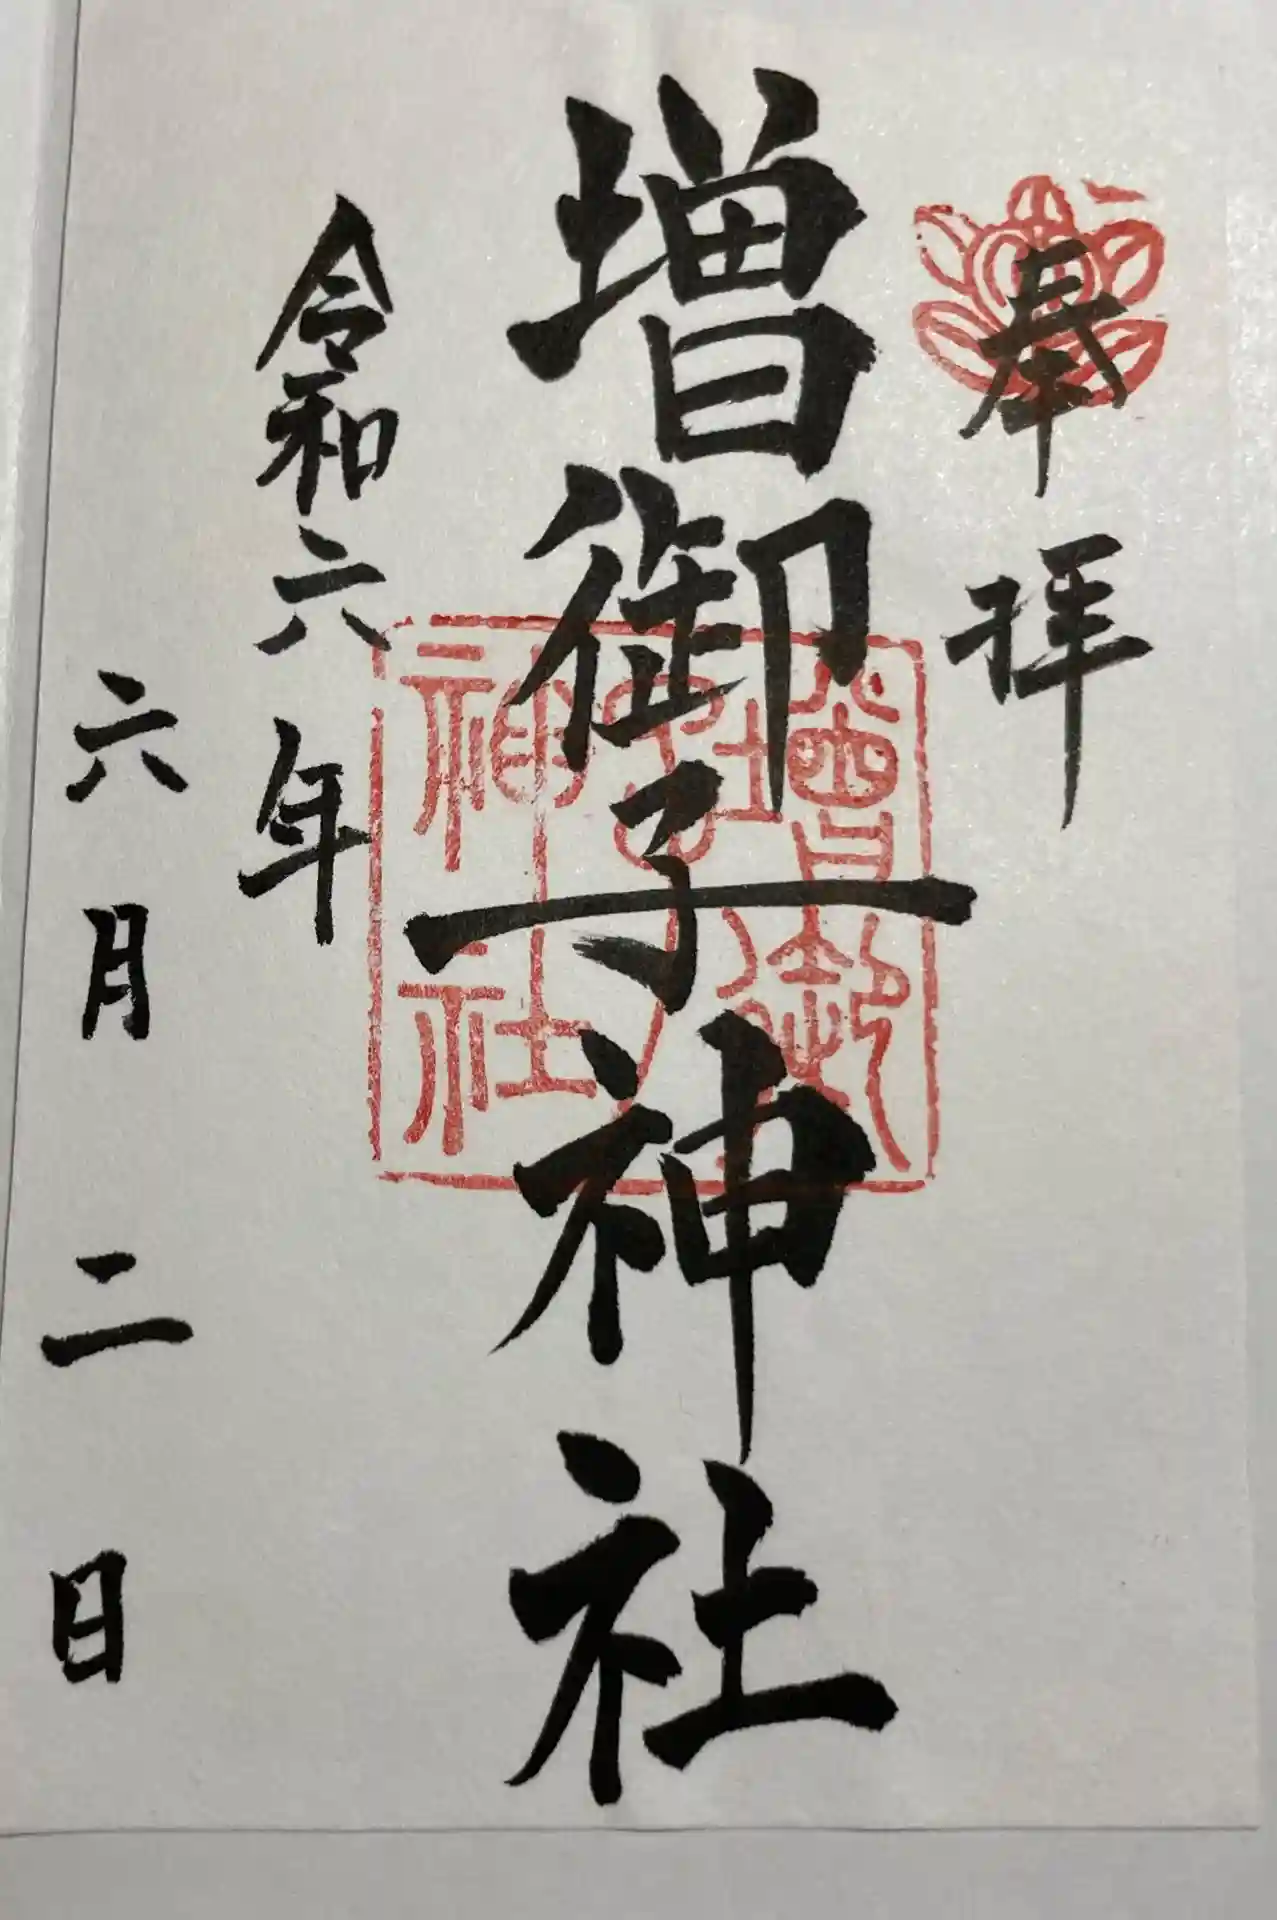 奉拝
増御子神社
増御子神社
令和六年
六月二日